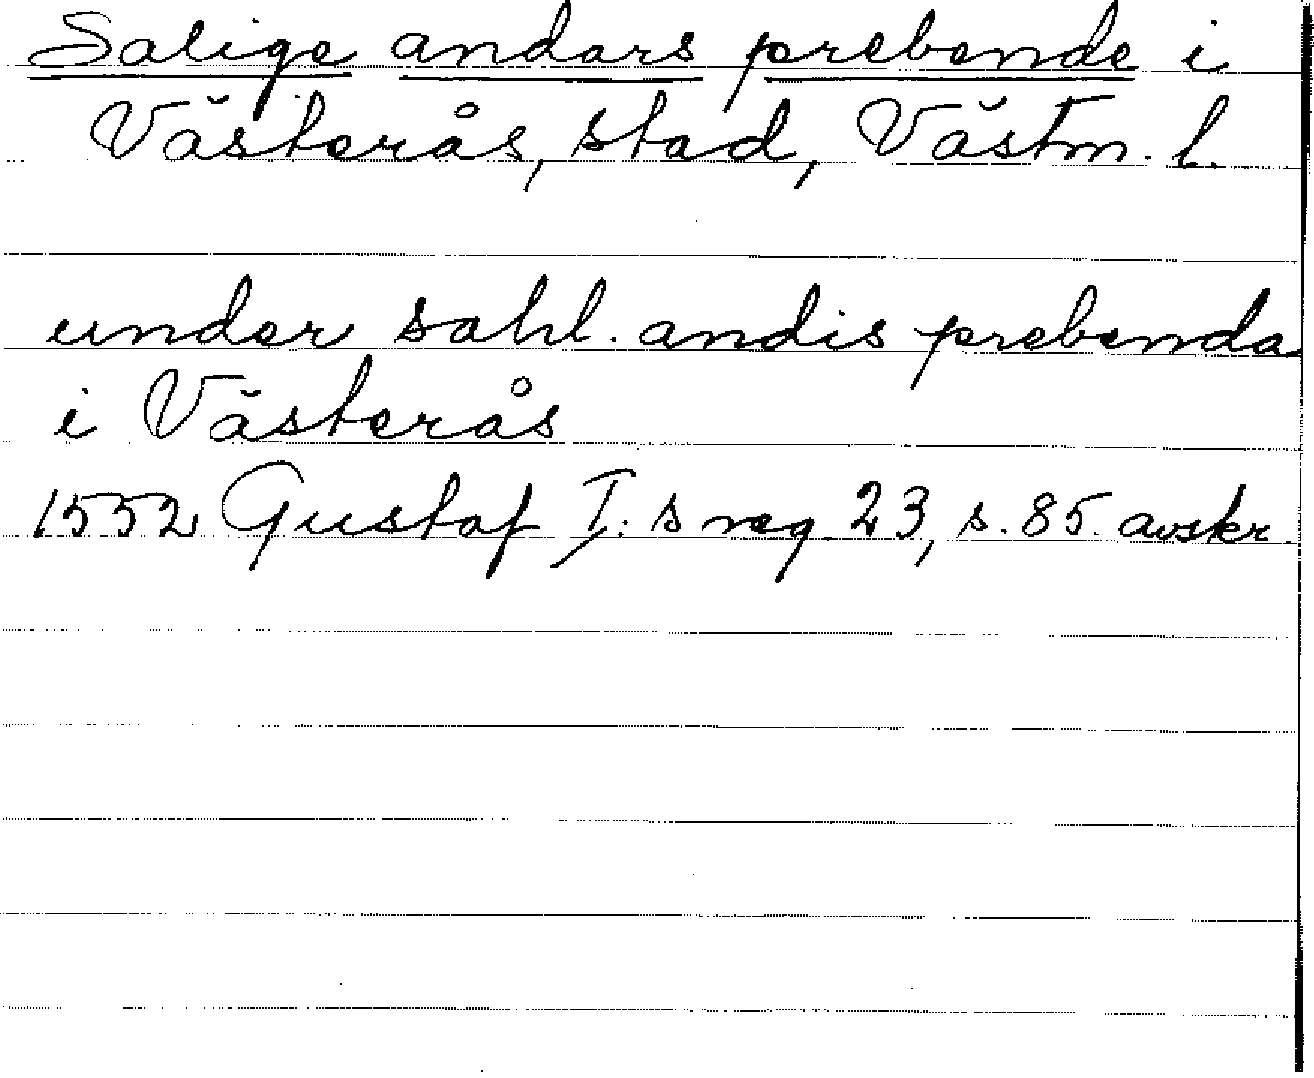 Salige andars prebende i
Västerås, stad, Västm. l.
under sahl. andis prebenda
i Västerås
1552 Gustaf I:s reg. 23, s. 85. avskr.